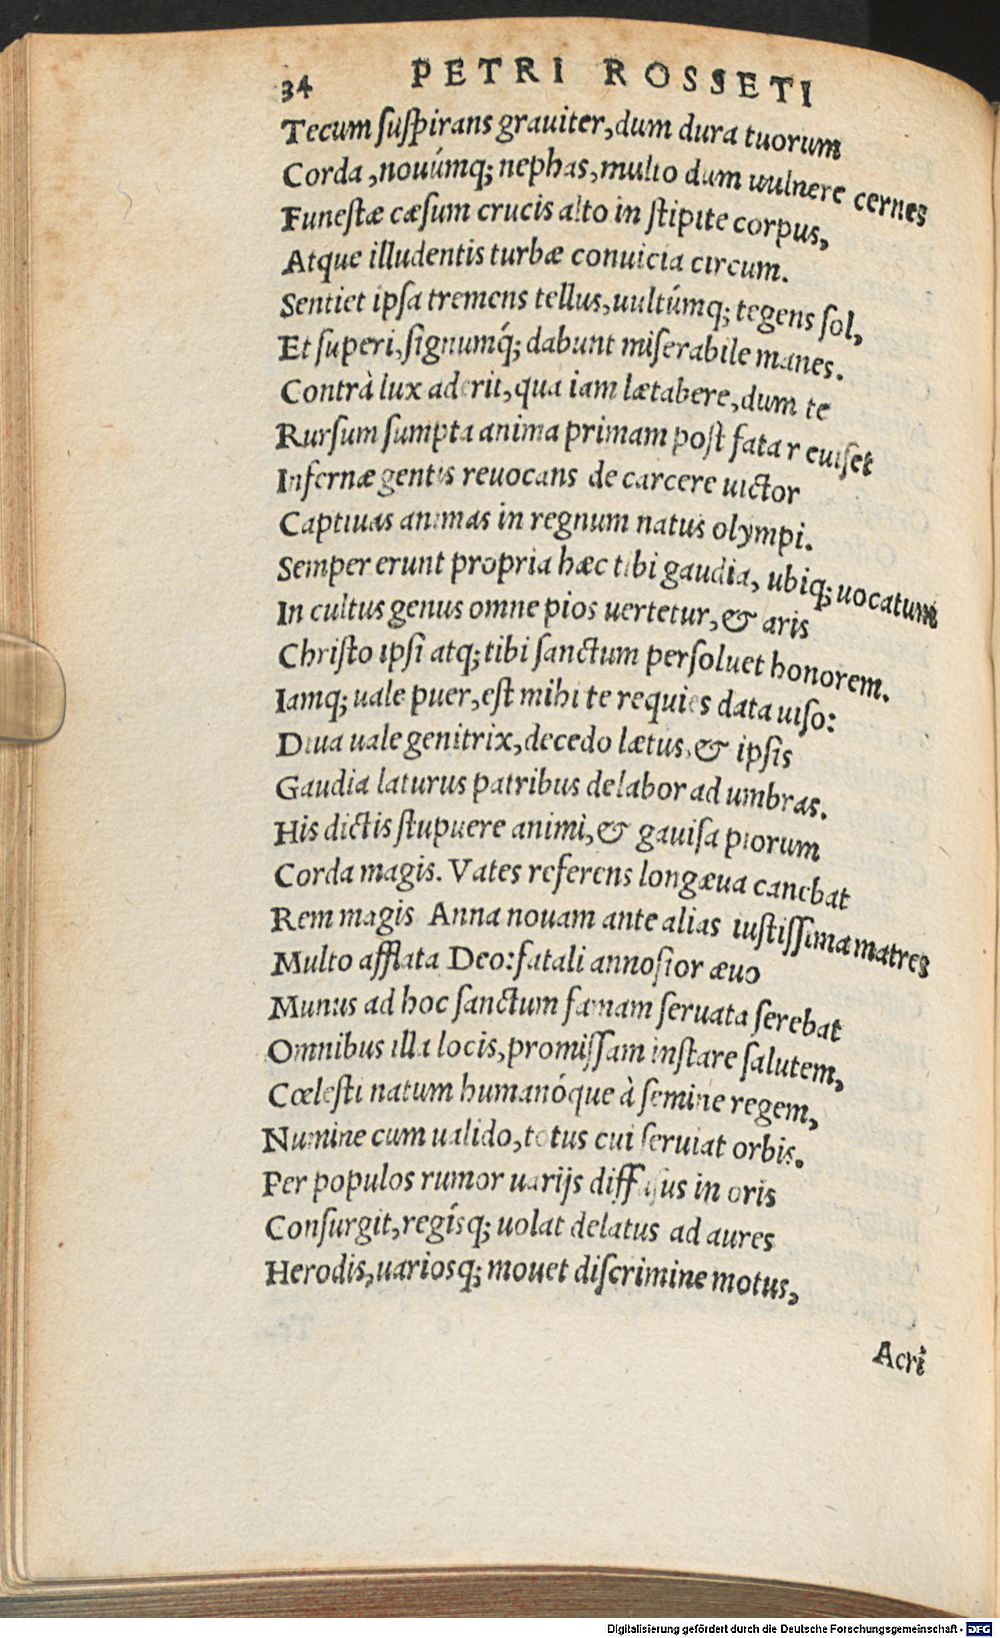 34 PETRI ROSSETI
Tecum suspirans grauiter, dum dura tuorum
Corda, nouúmq; nephas, multo dum uulnere cernes
Funestæ cæsum crucis alto in stipite corpus,
Atque illudentis turbæ conuicia circum.
Sentiet ipsa tremens tellus, uultúmq; tegens sol,
Et superi, signumq́; dabunt miserabile manes.
Contrà lux aderit, qua iam lætabere, dum te
Rursum sumpta anima primam post fata reuiset
Infernæ gentis reuocans de carcere uictor
Captiuas animas in regnum natus olympi.
Semper erunt propria hæc tibi gaudia, ubiq; uocatum
In cultus genus omne pios uertetur, & aris
Christo ipsi atq; tibi sanctum persoluet honorem.
Iamq; uale puer, est mihi te requies data uiso:
Diua uale genitrix, decedo lætus, & ipsis
Gaudia laturus patribus delabor ad umbras.
His dictis stupuere animi, & gauisa piorum
Corda magis. Vates referens longæua canebat
Rem magis Anna nouam ante alias iustissima matres
Multo afflata Deo: fatali annosior æuo
Munus ad hoc sanctum famam seruata serebat
Omnibus illa locis, promissam instare salutem,
Cœlesti natum humanóque à semine regem,
Numine cum ualido, totus cui seruiat orbis.
Per populos rumor uarijs diffusus in oris
Consurgit, regísq; uolat delatus ad aures
Herodis, uariosq; mouet discrimine motus,
Acri
Digitalisierung gefördert durch die Deutsche Forschungsgemeinschaft - DFG